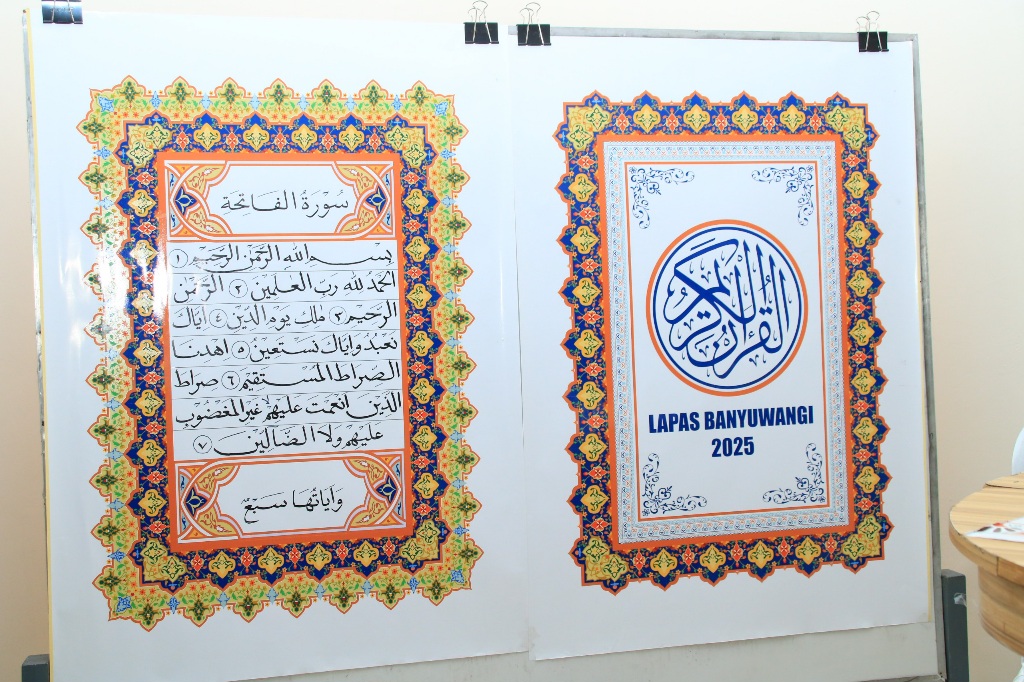 سُورَةُ الفَاتِحَةِ
بِسْمِ اللهِ الرَّحْمٰنِ الرَّحِيْمِ ١
الحَمْدُ للهِ رَبِّ العٰلَمِيْنَ ٢ الرَّحْمٰنِ
الرَّحِيْمِ ٣ مٰلِكِ يَوْمِ الدِّيْنِ ٤ اِيَّاكَ
نَعْبُدُ وَاِيَّاكَ نَسْتَعِيْنُ ٥ اهْدِنَا
الصِّرَاطَ المُسْتَقِيْمَ ٦ صِرَاطَ
الَّذِيْنَ اَنْعَمْتَ عَلَيْهِمْ غَيْرِ المَغْضُوْبِ
عَلَيْهِمْ وَلَا الضَّالِّيْنَ ٧
وَآيَاتُهَا سَبْعٌ
القرآن الكريم
LAPAS BANYUWANGI
2025